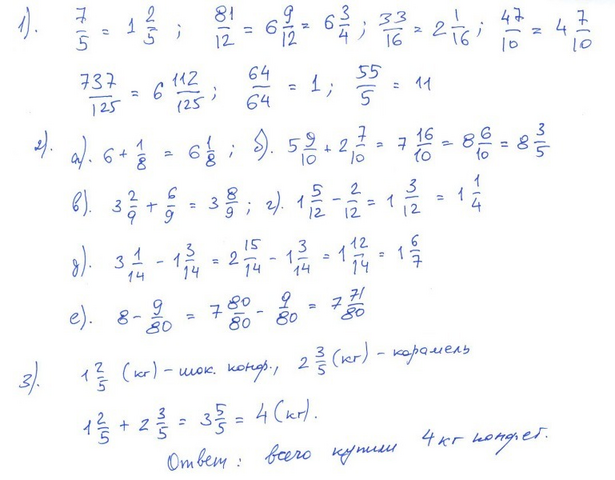 1). 7/5 = 1 2/5 ; 81/12 = 6 9/12 = 6 3/4 ; 33/16 = 2 1/16 ; 47/10 = 4 7/10
737/125 = 6 112/125 ; 64/64 = 1 ; 55/5 = 11
2). а). 6 + 1/8 = 6 1/8 ; б). 5 9/10 + 2 7/10 = 7 16/10 = 8 6/10 = 8 3/5
в). 3 2/9 + 6/9 = 3 8/9 ; г). 1 5/12 - 2/12 = 1 3/12 = 1 1/4
д). 3 1/14 - 1 3/14 = 2 15/14 - 1 3/14 = 1 12/14 = 1 6/7
е). 8 - 9/80 = 7 80/80 - 9/80 = 7 71/80
3). 1 2/5 (кг) - шок. конф., 2 3/5 (кг) - карамель
1 2/5 + 2 3/5 = 3 5/5 = 4 (кг).
Ответ: всего купили 4 кг конфет.